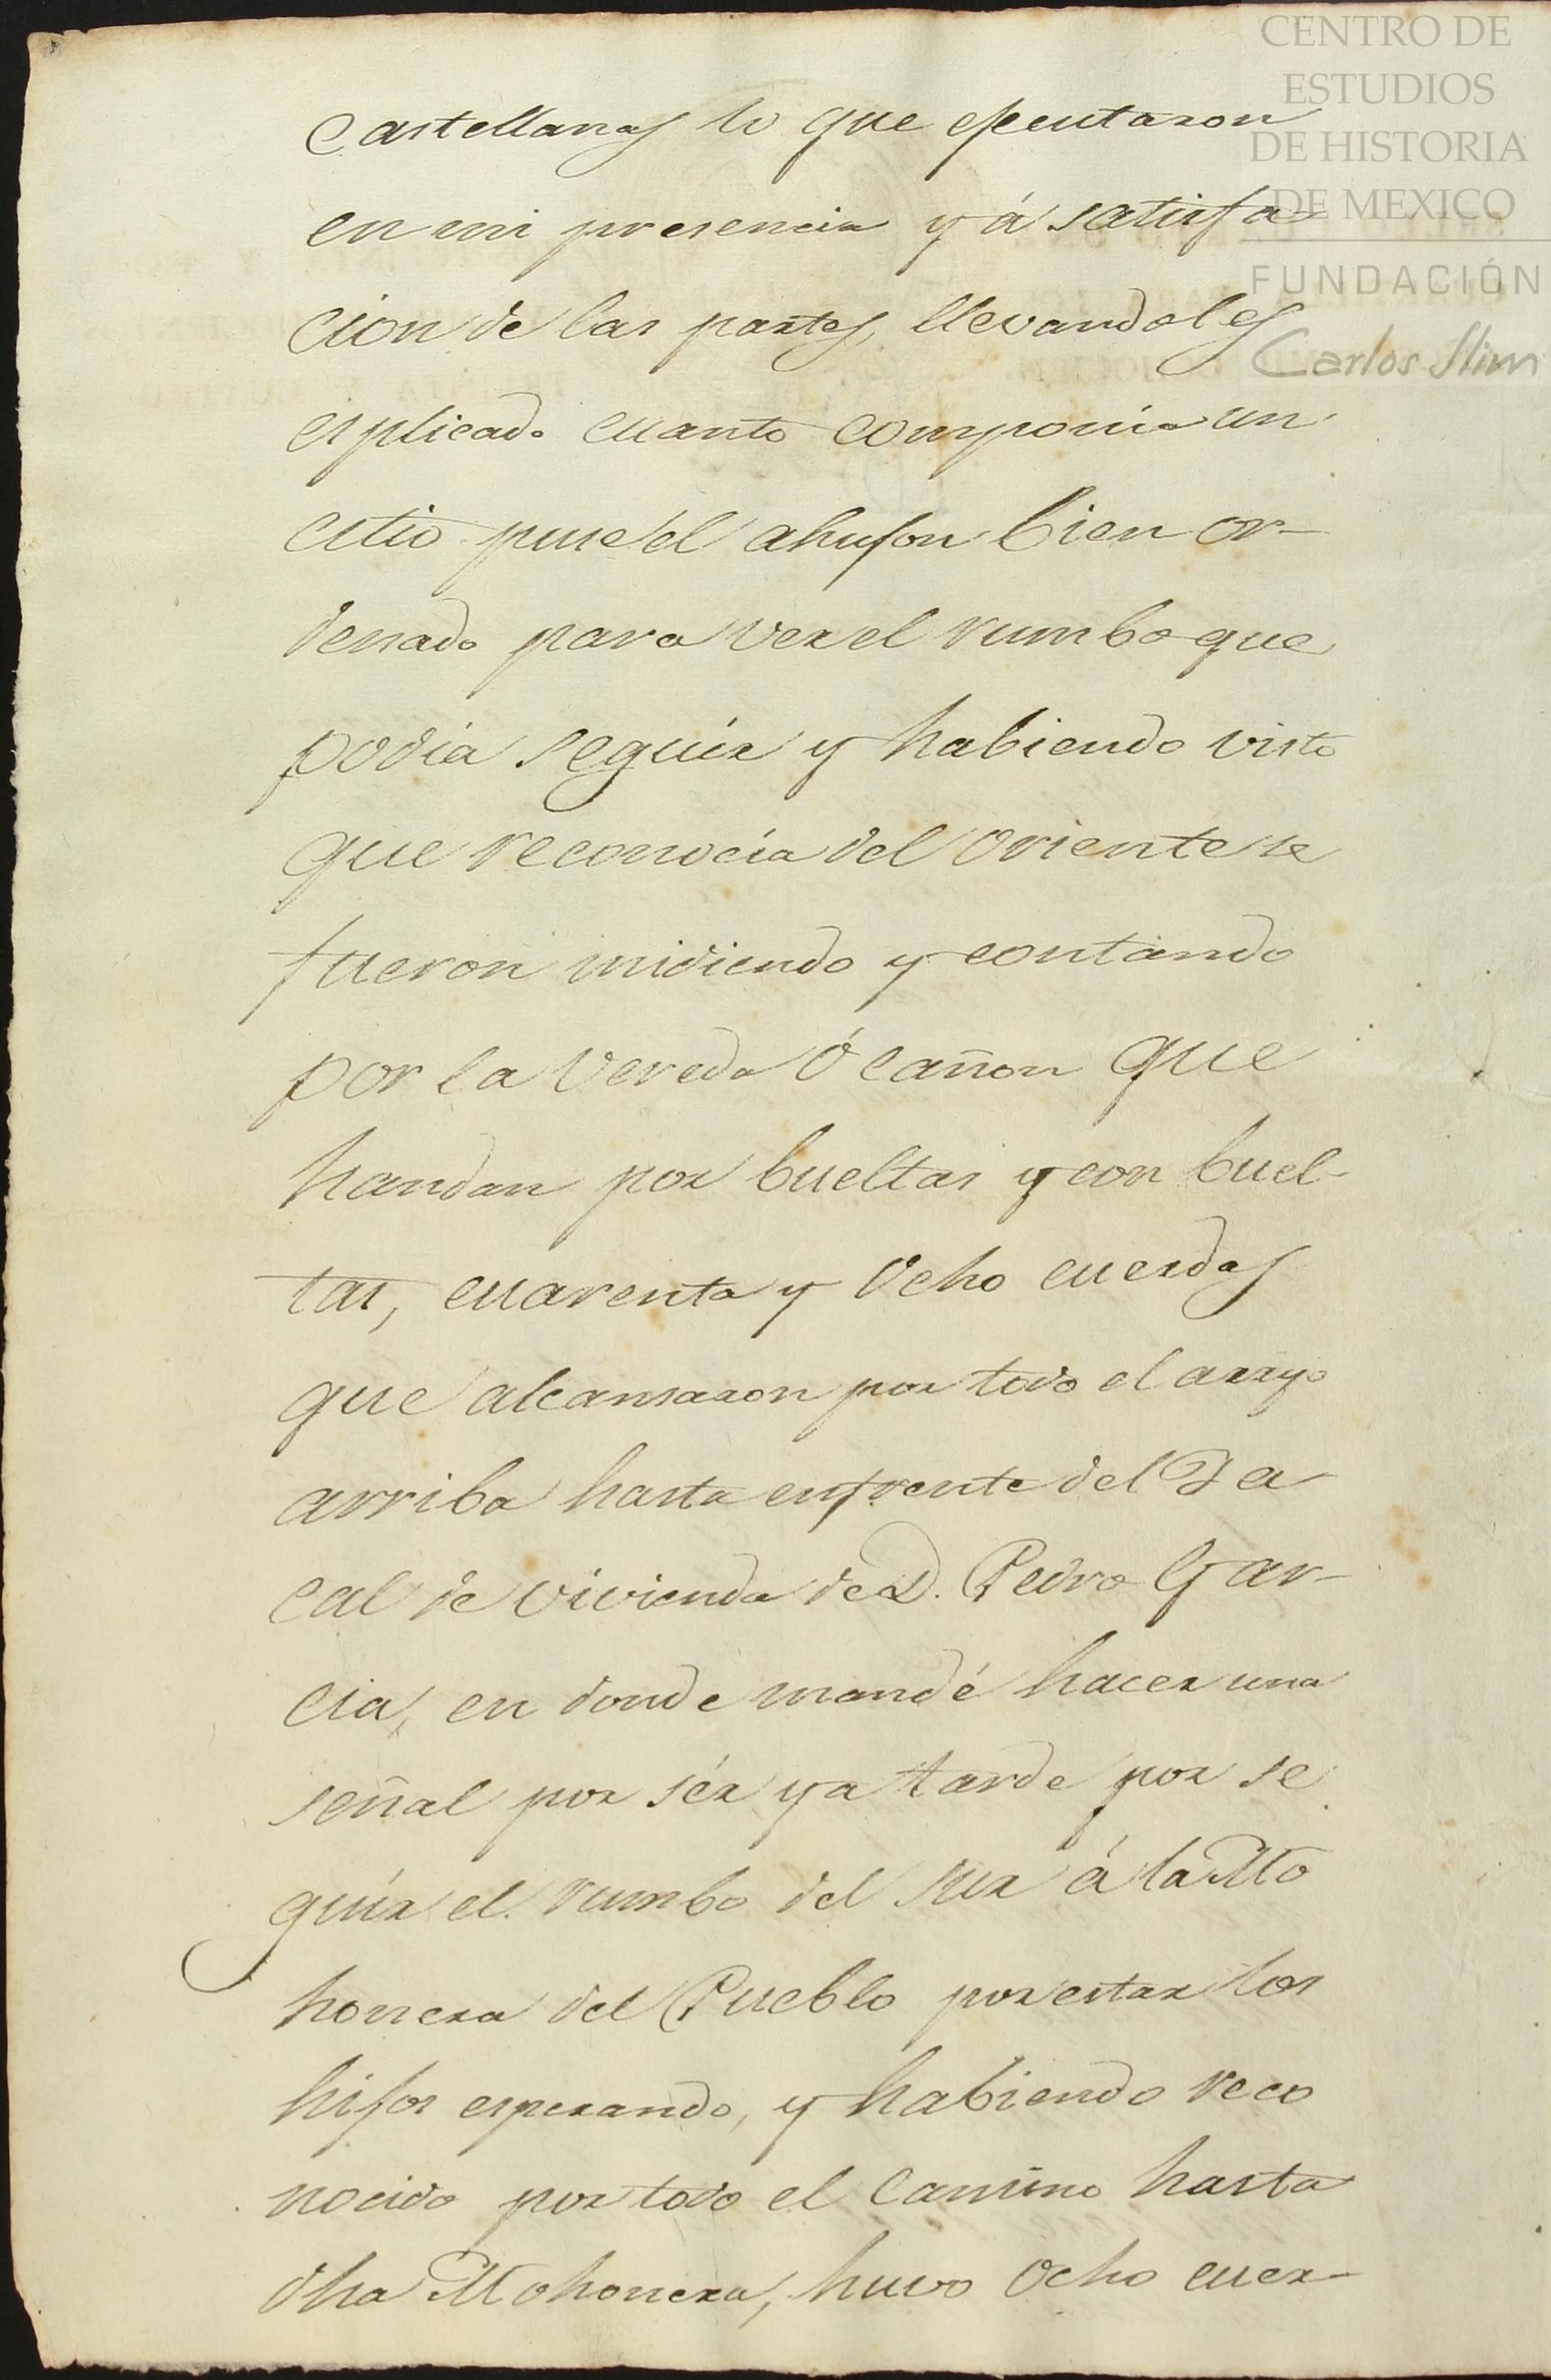 CENTRO DE
ESTUDIOS
DE HISTORIA
DE MEXICO
FUNDACIÓN
Carlos Slim
Castellanas lo que ejecutaron
en mi presencia y á satisfa-
cion de las partes, llevandoles
esplicado cuanto componia un
citio puse el ahujon bien or-
denado para ver el rumbo que
podia seguir y habiendo visto
que reconocía del oriente se
fueron midiendo y contando
por la vereda ó cañon que
handan por bueltas y con buel-
tas, cuarenta y ocho cuerdas
que alcansaron por todo el arryo
arriba hasta enfrente del Ja
cal de vivienda de D. Pedro Gar-
cia, en donde mandé hacer una
señal por sér ya tarde por se
guir el rumbo del sur á la Mo
honera del Pueblo por estar los
hijos esperando, y habiendo reco
nocido por todo el camino hasta
dha Mohonera, huvo ocho cuer-